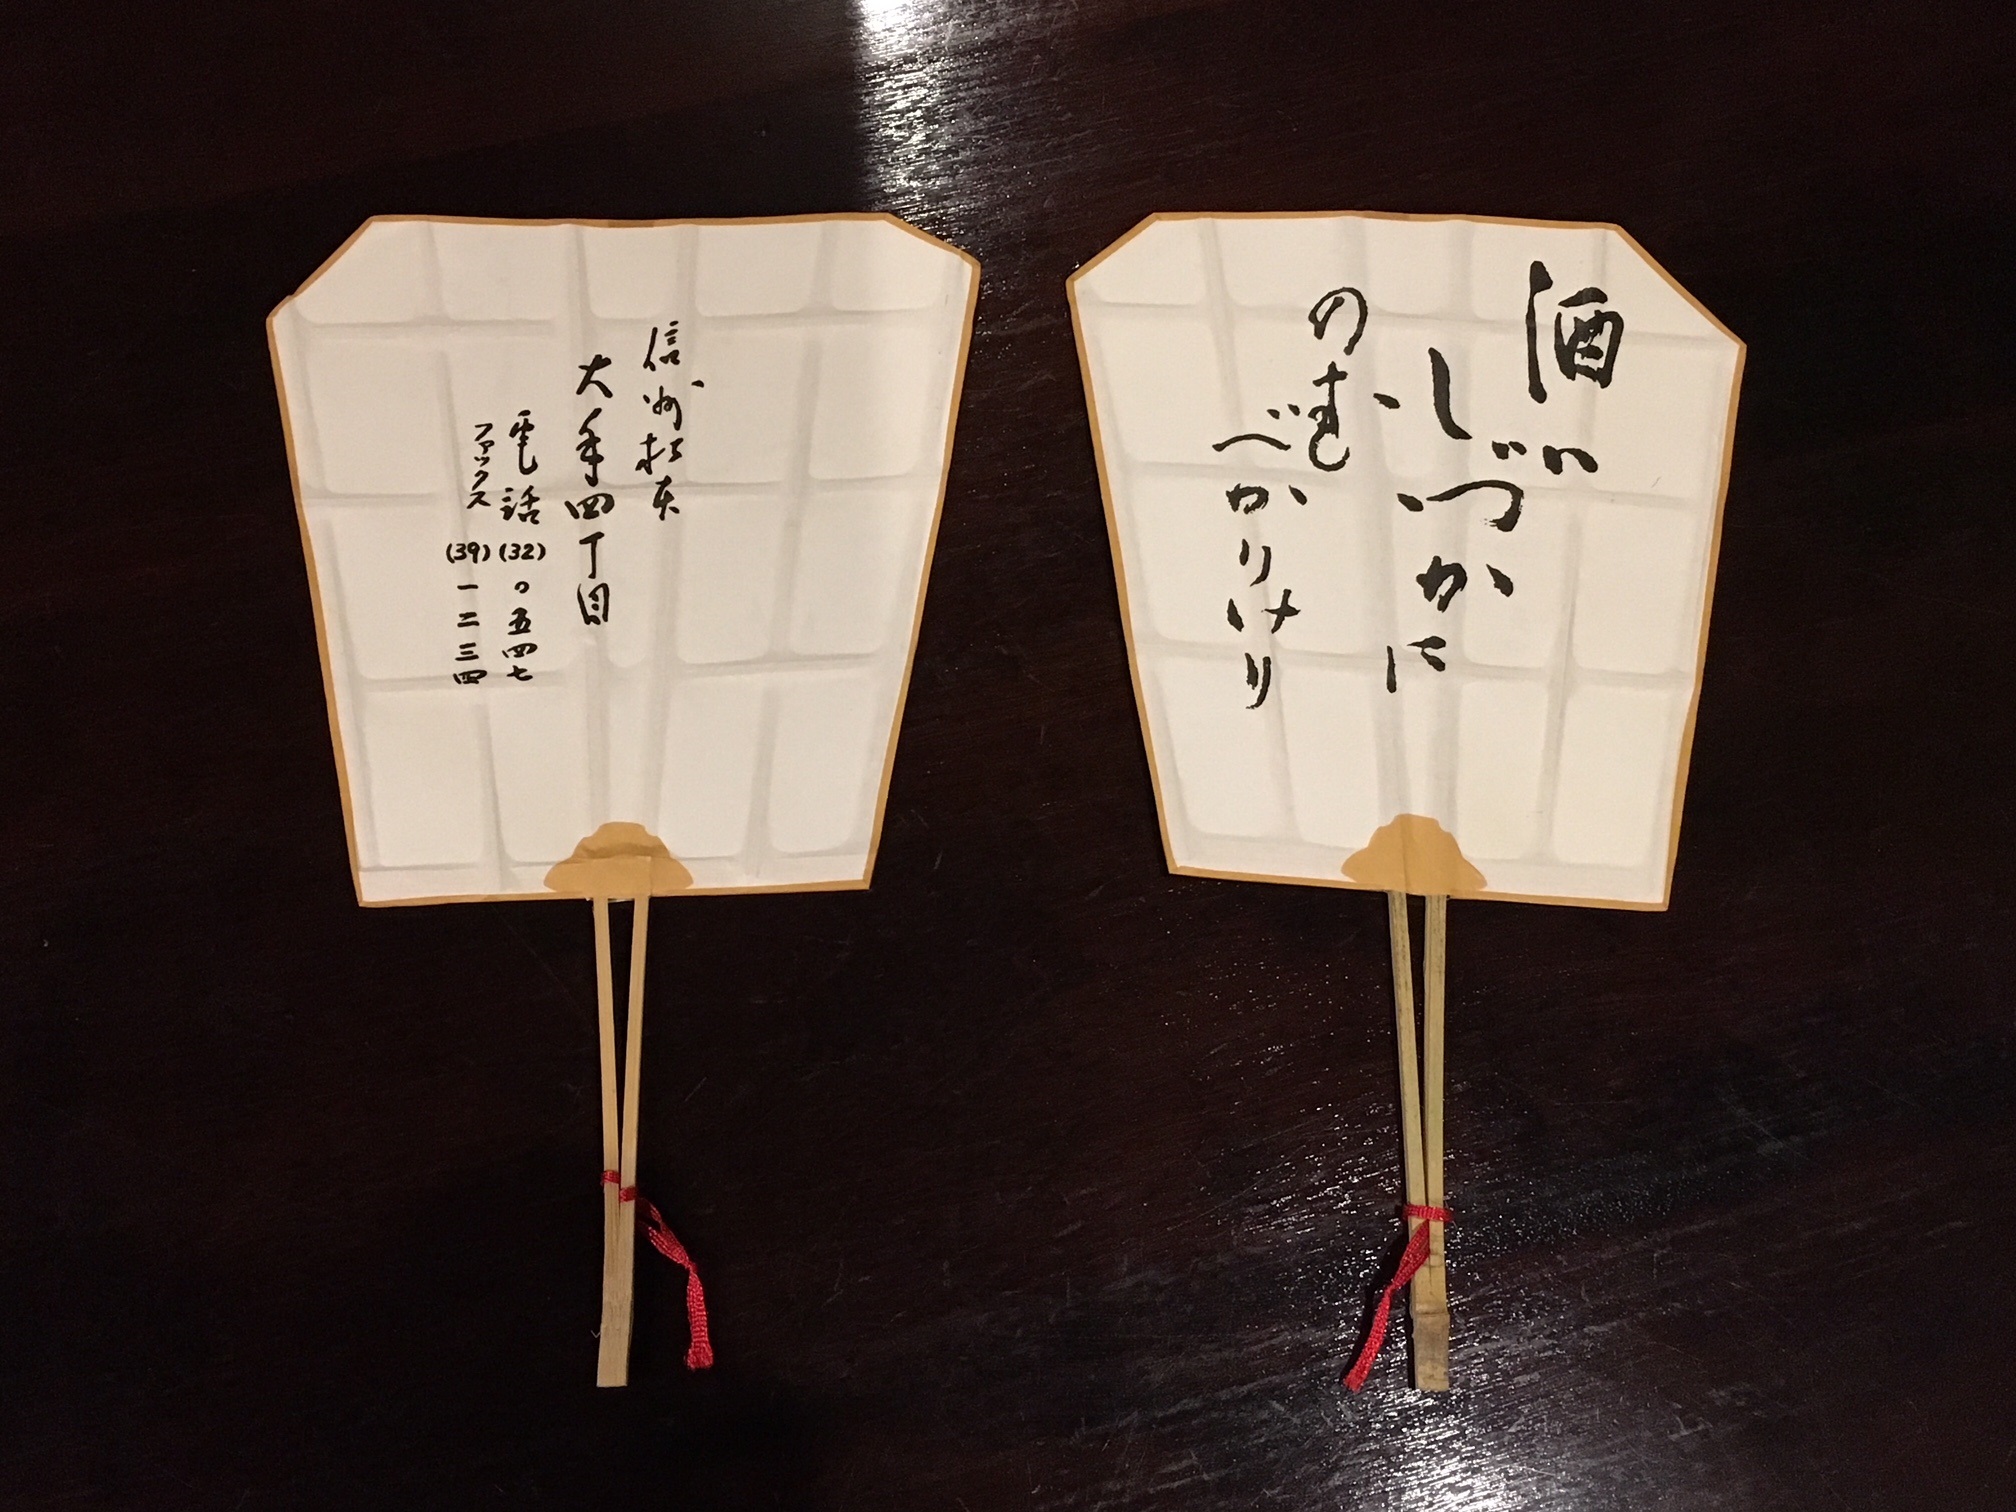 酒ハ
しづかに
のむ
べかりけり
信州松本
大手四丁目
電話(32)〇五四七
ファックス(39)一二三四